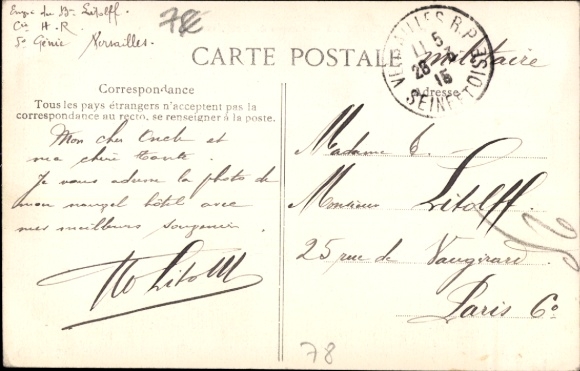 Litolff.
Cie H.R.
5e Génie Versailles.
78
CARTE POSTALE militaire
VERSAILLES R.P.
11 5
28
15
SEINE ET OISE
Correspondance
Tous les pays étrangers n'acceptent pas la
correspondance au recto, se renseigner à la poste.
Adresse
Mon cher Oncle et
ma chère Tante.
Je vous adresse la photo de
mon nouvel hôtel avec
mes meilleurs souvenirs.
Litolff
Madame &
Monsieur Litolff
25 rue de Vaugirard.
Paris 6e
78